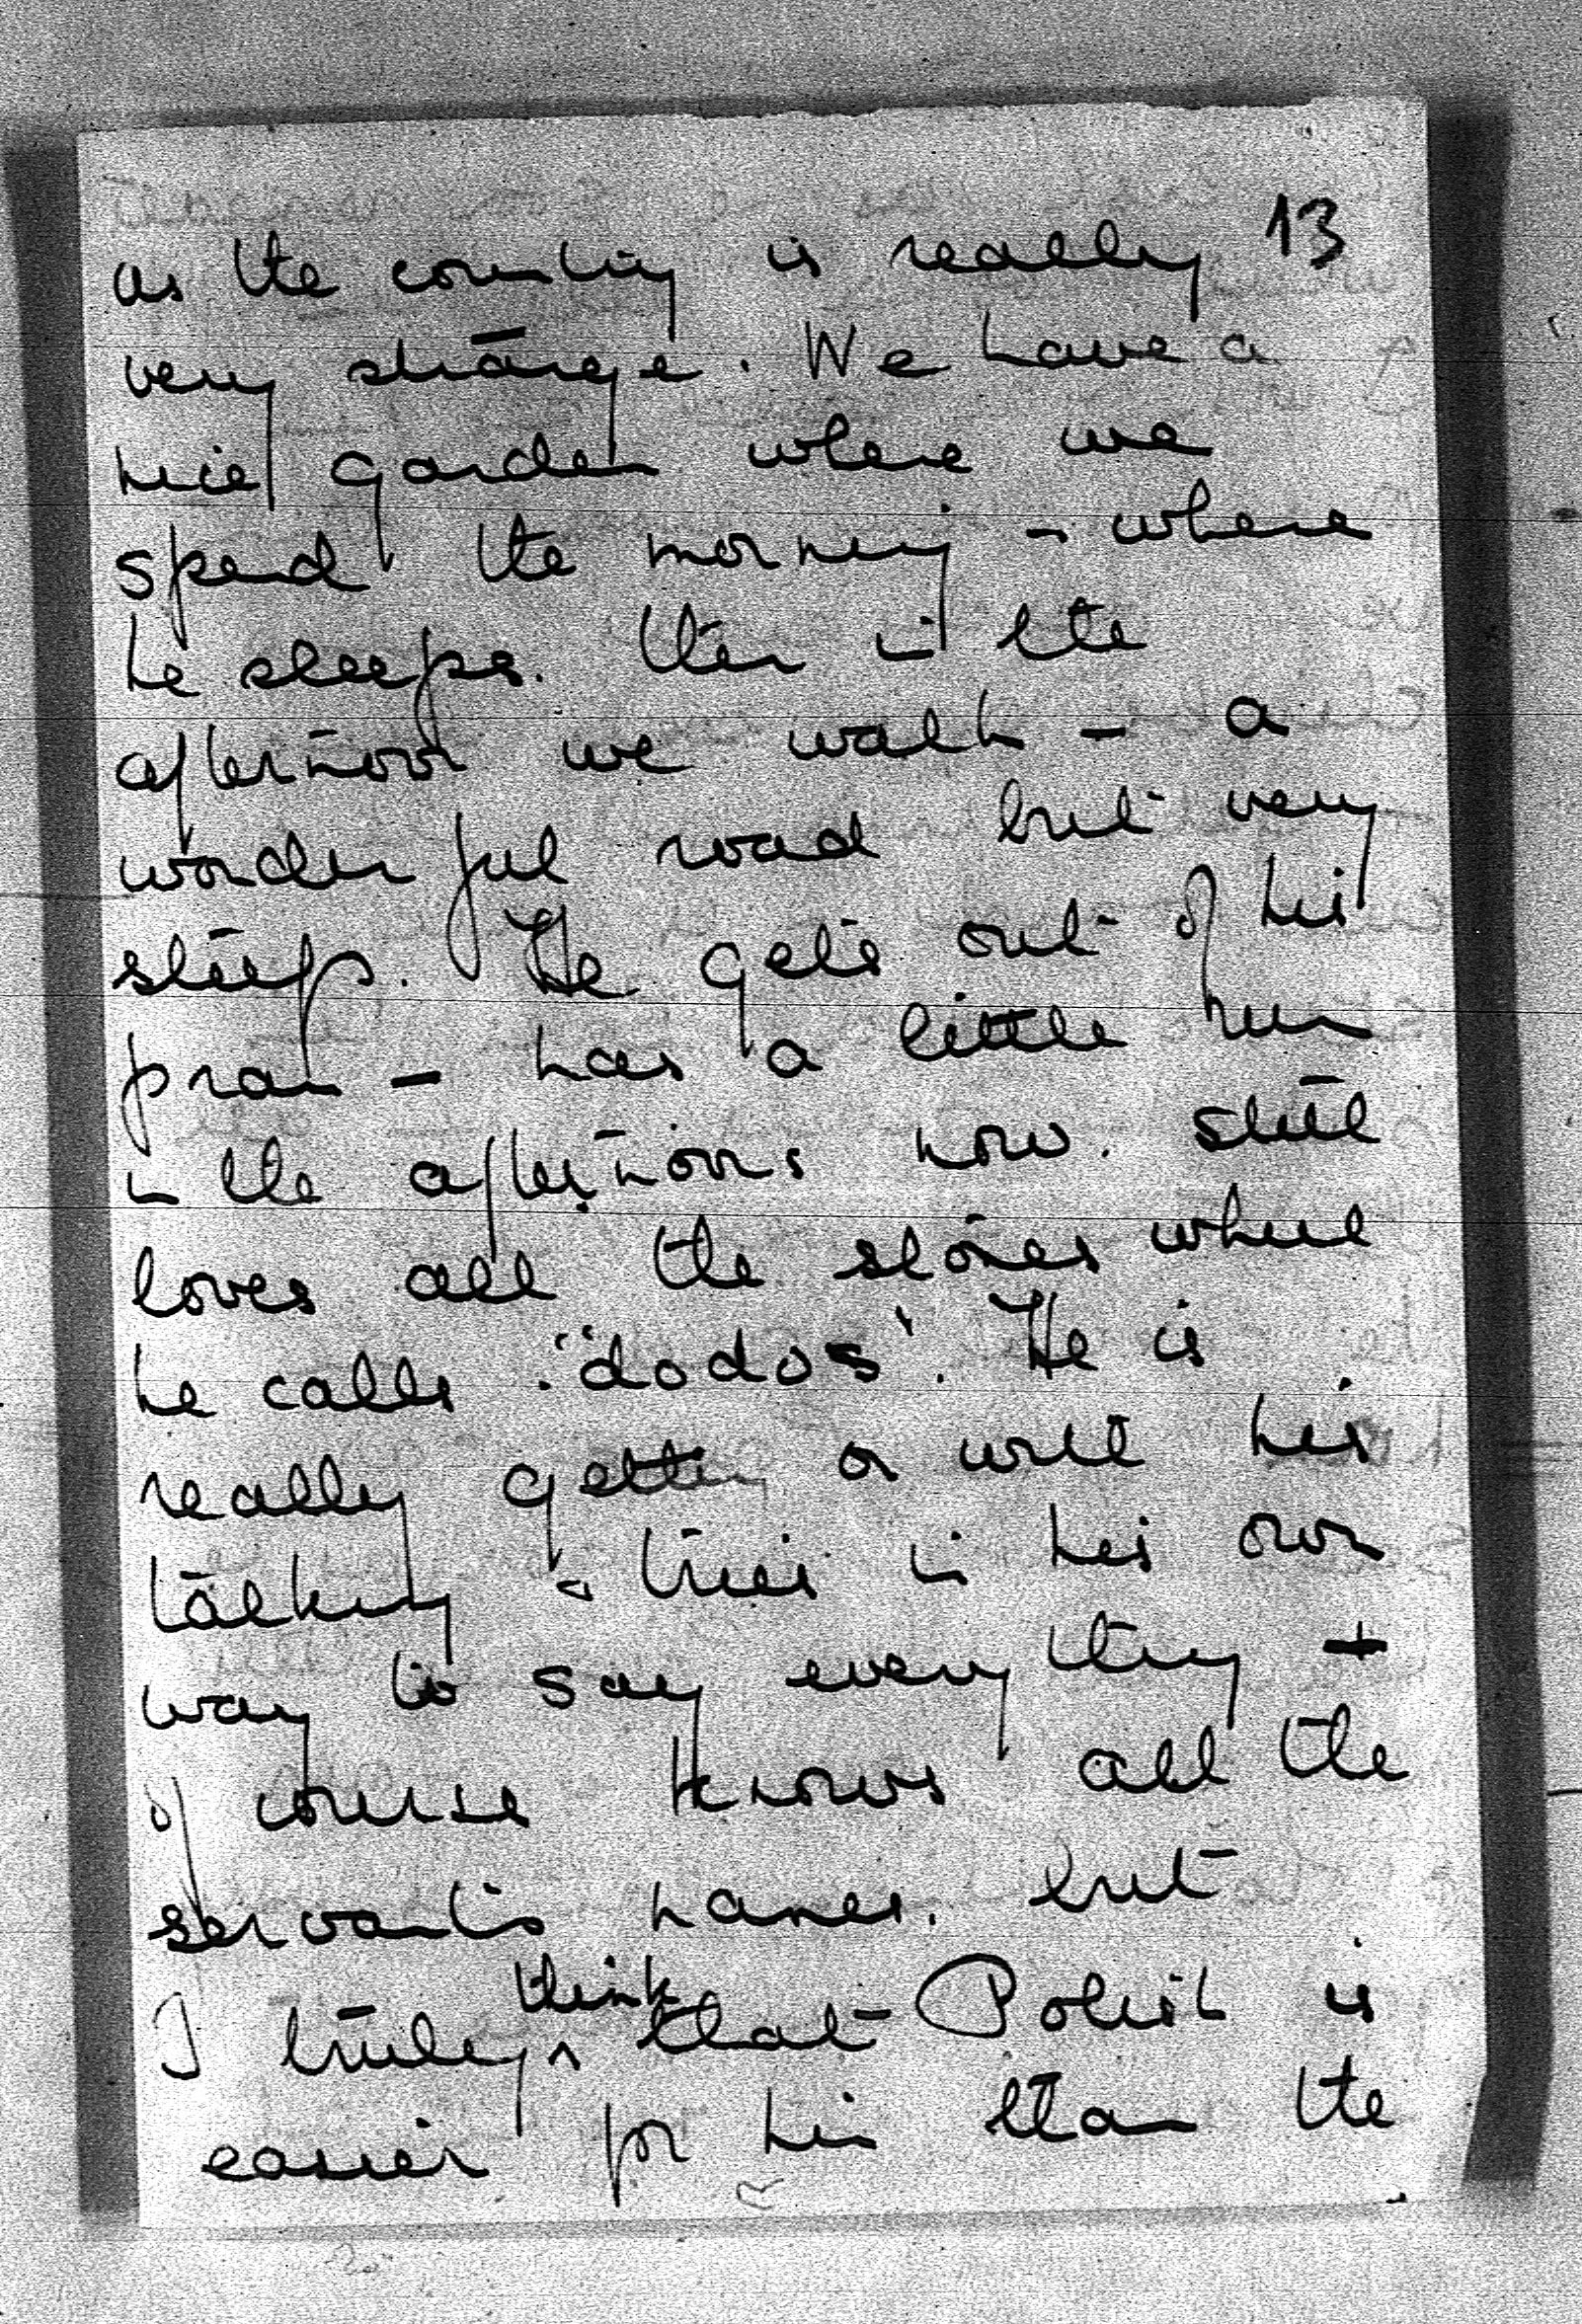 13
as the country is really
very strange. We have a
nice garden where we
spend the morning - where
he sleeps. Then in the
afternoon we walk - a
wonderful road but very
steep. He gets out of his
pram - has a little run
in the afternoons now. still
loves all the stones which
he calls 'dodos'. He is
really getting on with his
talking & tries in his own
way to say every thing +
of course knows all the
servants names. but
I truly think that Polish is
easier for him than the